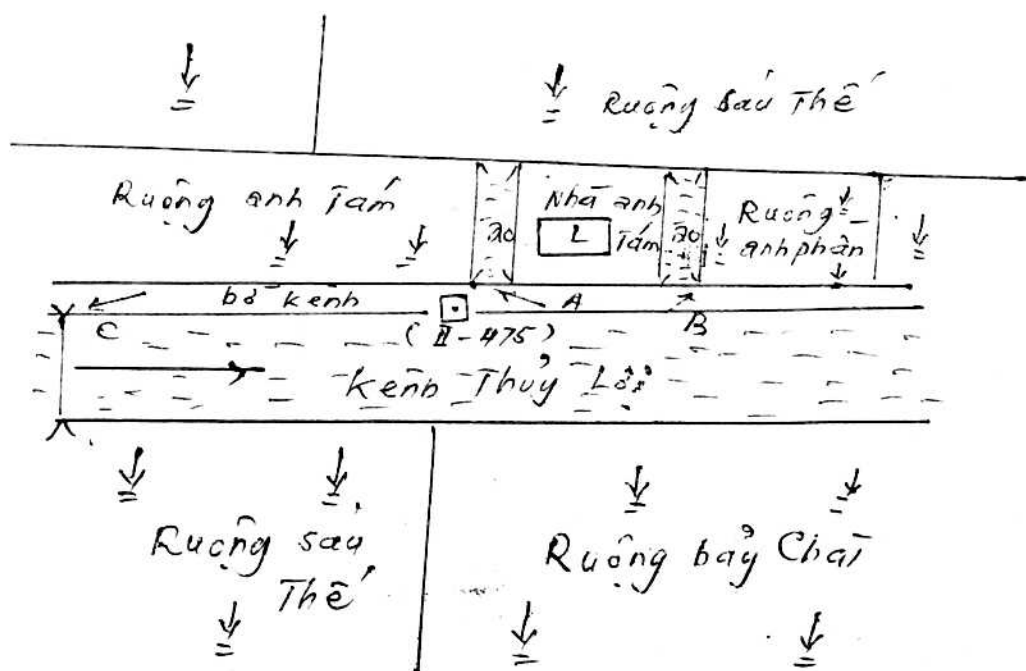 Ruộng sáu Thế
Ruộng anh Tám
ao
Nhà anh
L
Tám
ao
Ruộng
anh phận
bờ kênh
A
B
C
(II-475)
Kênh Thủy Lợi
Ruộng sáu
Thế
Ruộng bảy Chai